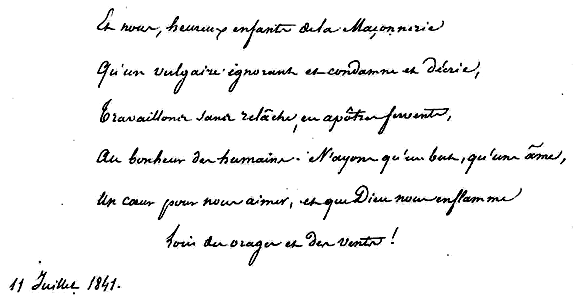 Et nous, heureux enfants de la Maçonnerie
Qu'un vulgaire ignorant et condamne et décrie,
Travaillons sans relâche, en apôtres fervents,
Au bonheur des humains. N'ayons qu'un but, qu'une âme,
Un cœur pour nous aimer, et que Dieu nous enflamme
Loin des orages et des vents !
11 Juillet 1841.